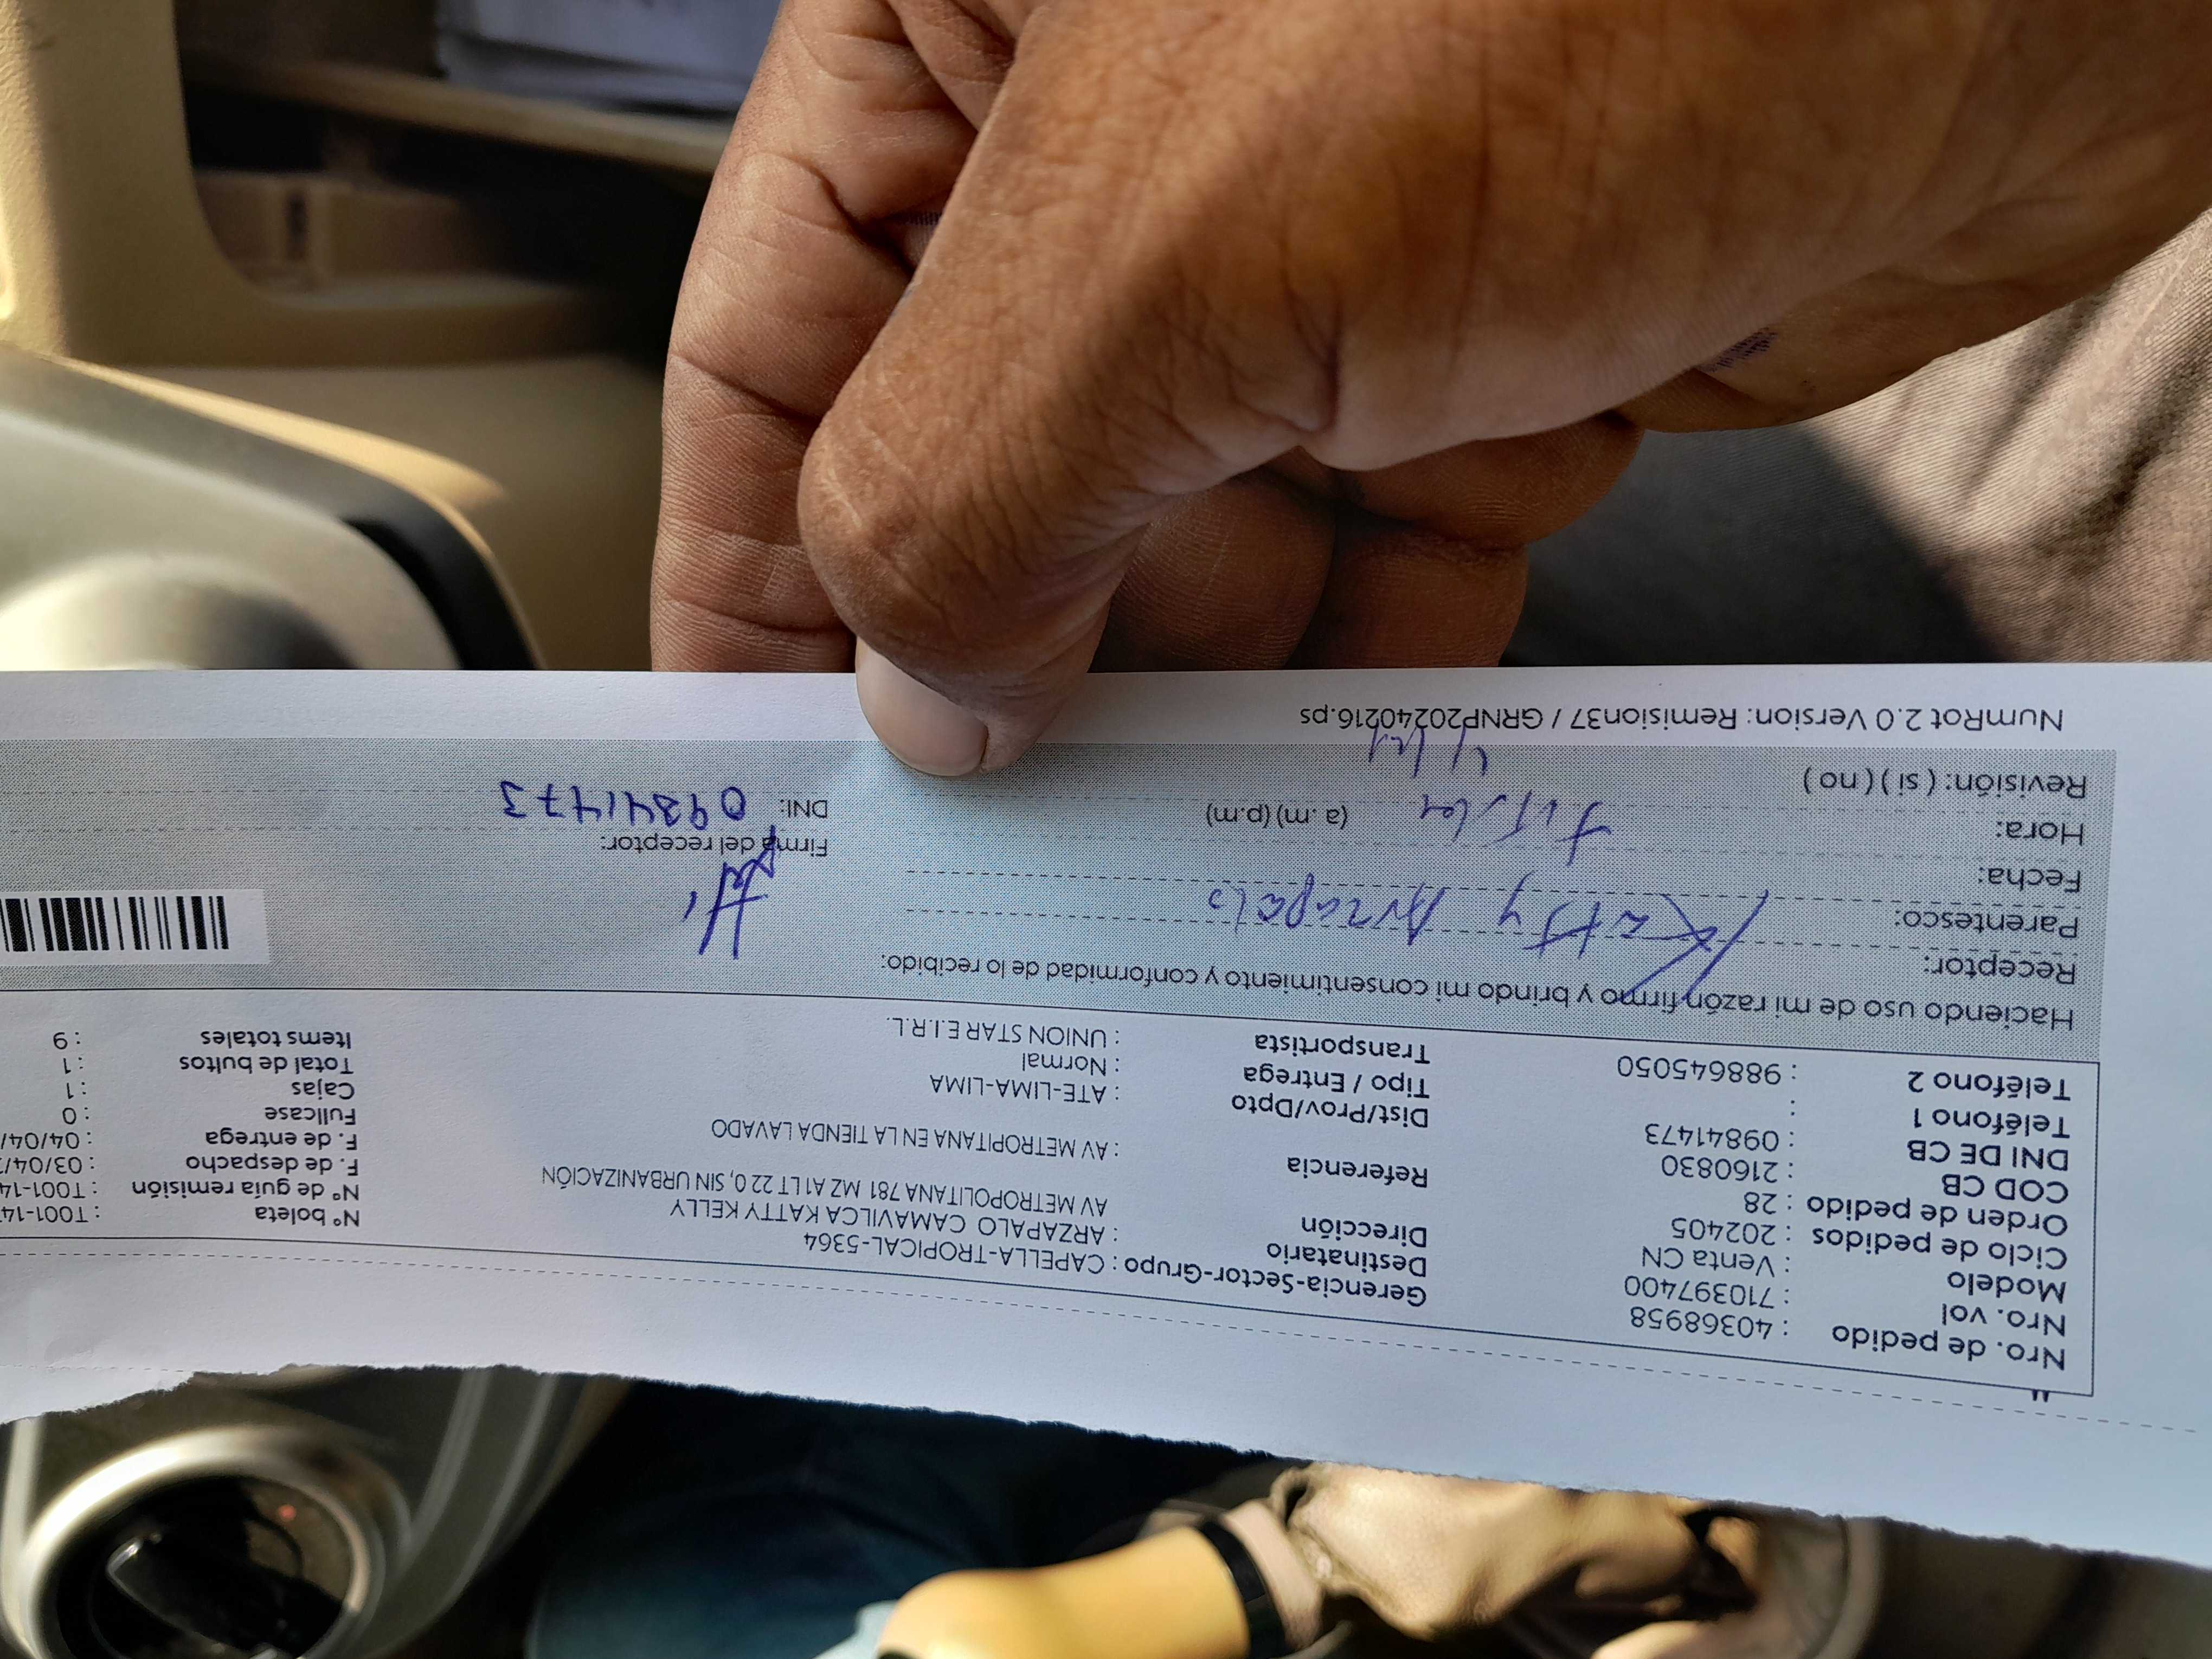 Nro. de pedido : 40368958
Nro. vol : 710397400
Modelo : Venta CN
Ciclo de pedidos : 202405
Orden de pedido : 28
COD CB : 2160830
DNI DE CB : 09841473
Teléfono 1 :
Teléfono 2 : 988645050
Gerencia-Sector-Grupo : CAPELLA-TROPICAL-5364
Destinatario : ARZAPALO CAMAVILCA KATTY KELLY
Dirección AV METROPOLITANA 781 MZ A1 LT 22 0, SIN URBANIZACIÓN
Referencia : AV METROPITANA EN LA TIENDA LAVADO
Dist/Prov/Dpto : ATE-LIMA-LIMA
Tipo / Entrega : Normal
Transportista : UNION STAR E.I.R.L.
Nº boleta : T001-14
Nº de guía remisión : T001-14
F. de despacho : 03/04/
F. de entrega : 04/04/
Fullcase : 0
Cajas : 1
Total de bultos : 1
Items totales : 9
Haciendo uso de mi razón firmo y brindo mi consentimiento y conformidad de lo recibido:
Receptor: Katty Arzapalo
Parentesco:
Fecha:
Hora: (a. m) (p.m)
Revisión: ( si ) ( no )
Firma del receptor:
DNI: 09841473
NumRot 2.0 Version: Remision37 / GRNP20240216.ps